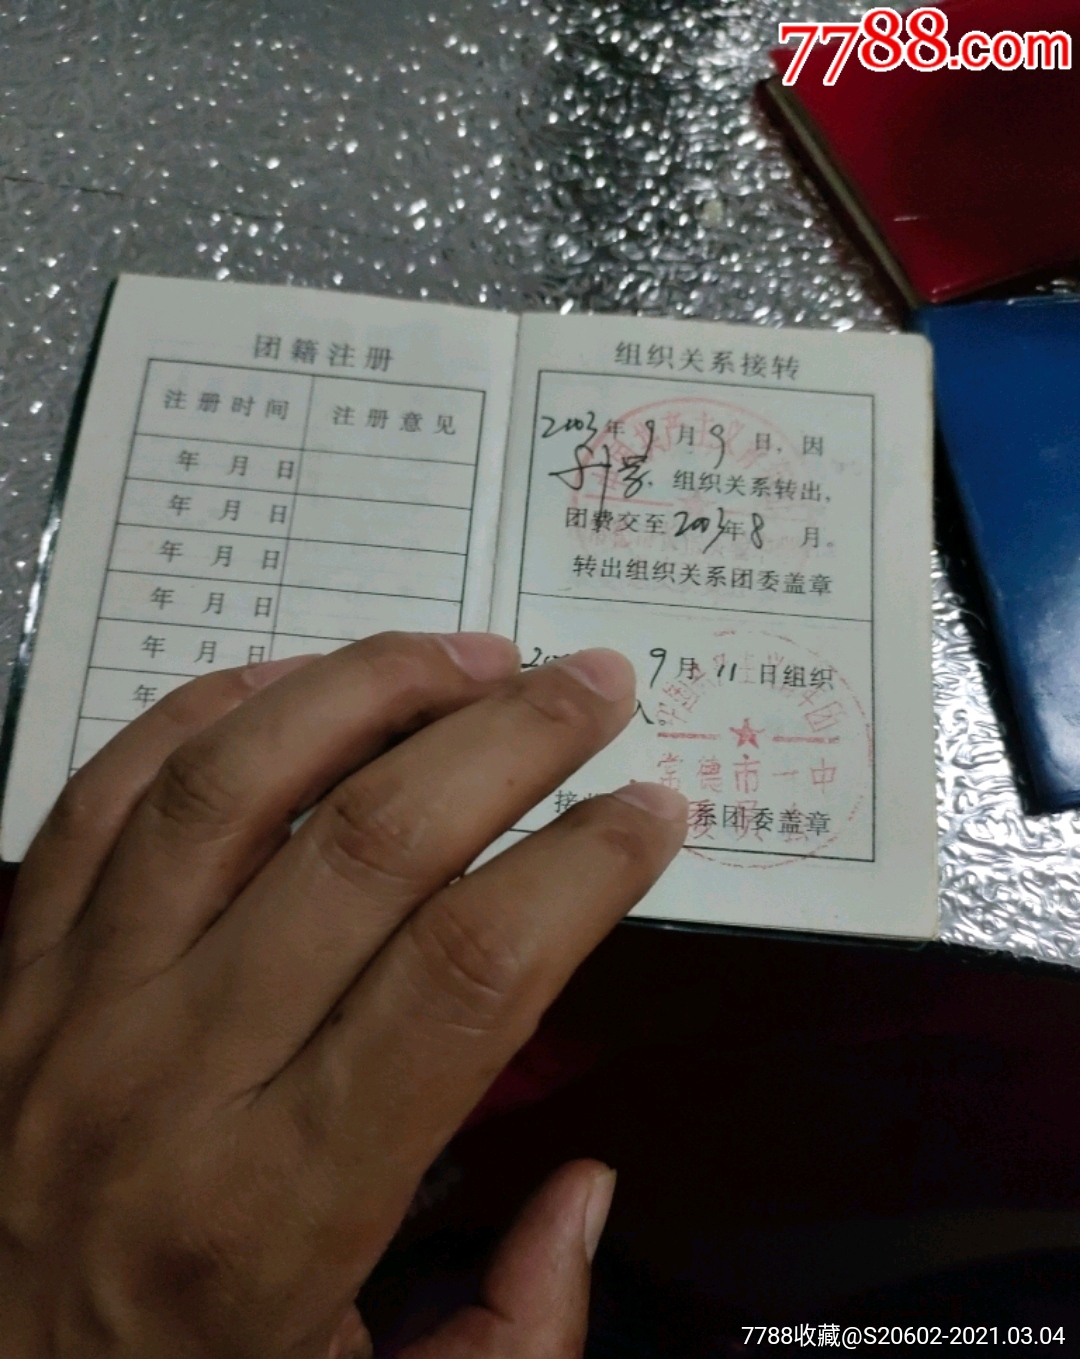 7788.com
团籍注册
注册时间 注册意见
年 月 日
年 月 日
年 月 日
年 月 日
年 月 日
年
组织关系接转
2003年9月9日,因
升学,组织关系转出,
团费交至2003年8月。
转出组织关系团委盖章
9月11日组织
入。
系团委盖章
常德市一中
委员会
7788收藏@S20602-2021.03.04